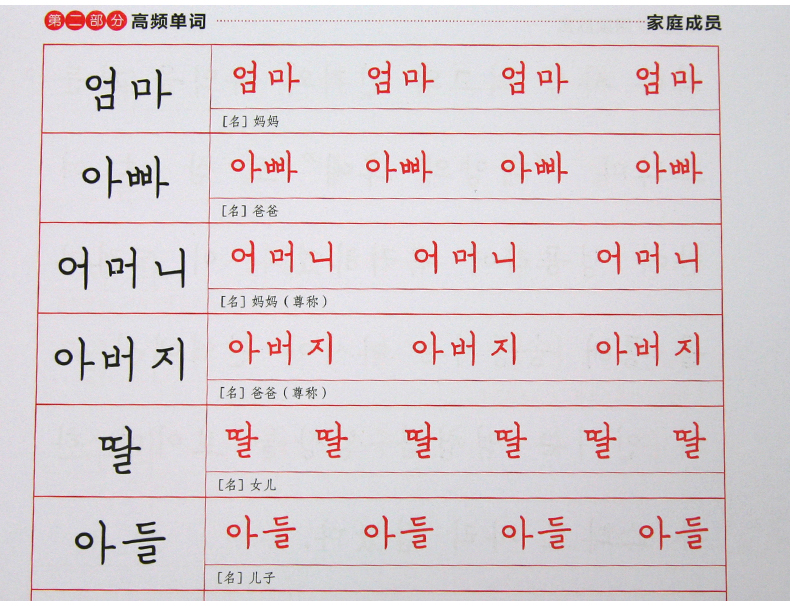 第二部分 高频单词 家庭成员
엄마 엄마 엄마 엄마 엄마
[名] 妈妈
아빠 아빠 아빠 아빠 아빠
[名] 爸爸
어머니 어머니 어머니 어머니
[名] 妈妈（尊称）
아버지 아버지 아버지 아버지
[名] 爸爸（尊称）
딸 딸 딸 딸 딸 딸 딸
[名] 女儿
아들 아들 아들 아들 아들
[名] 儿子